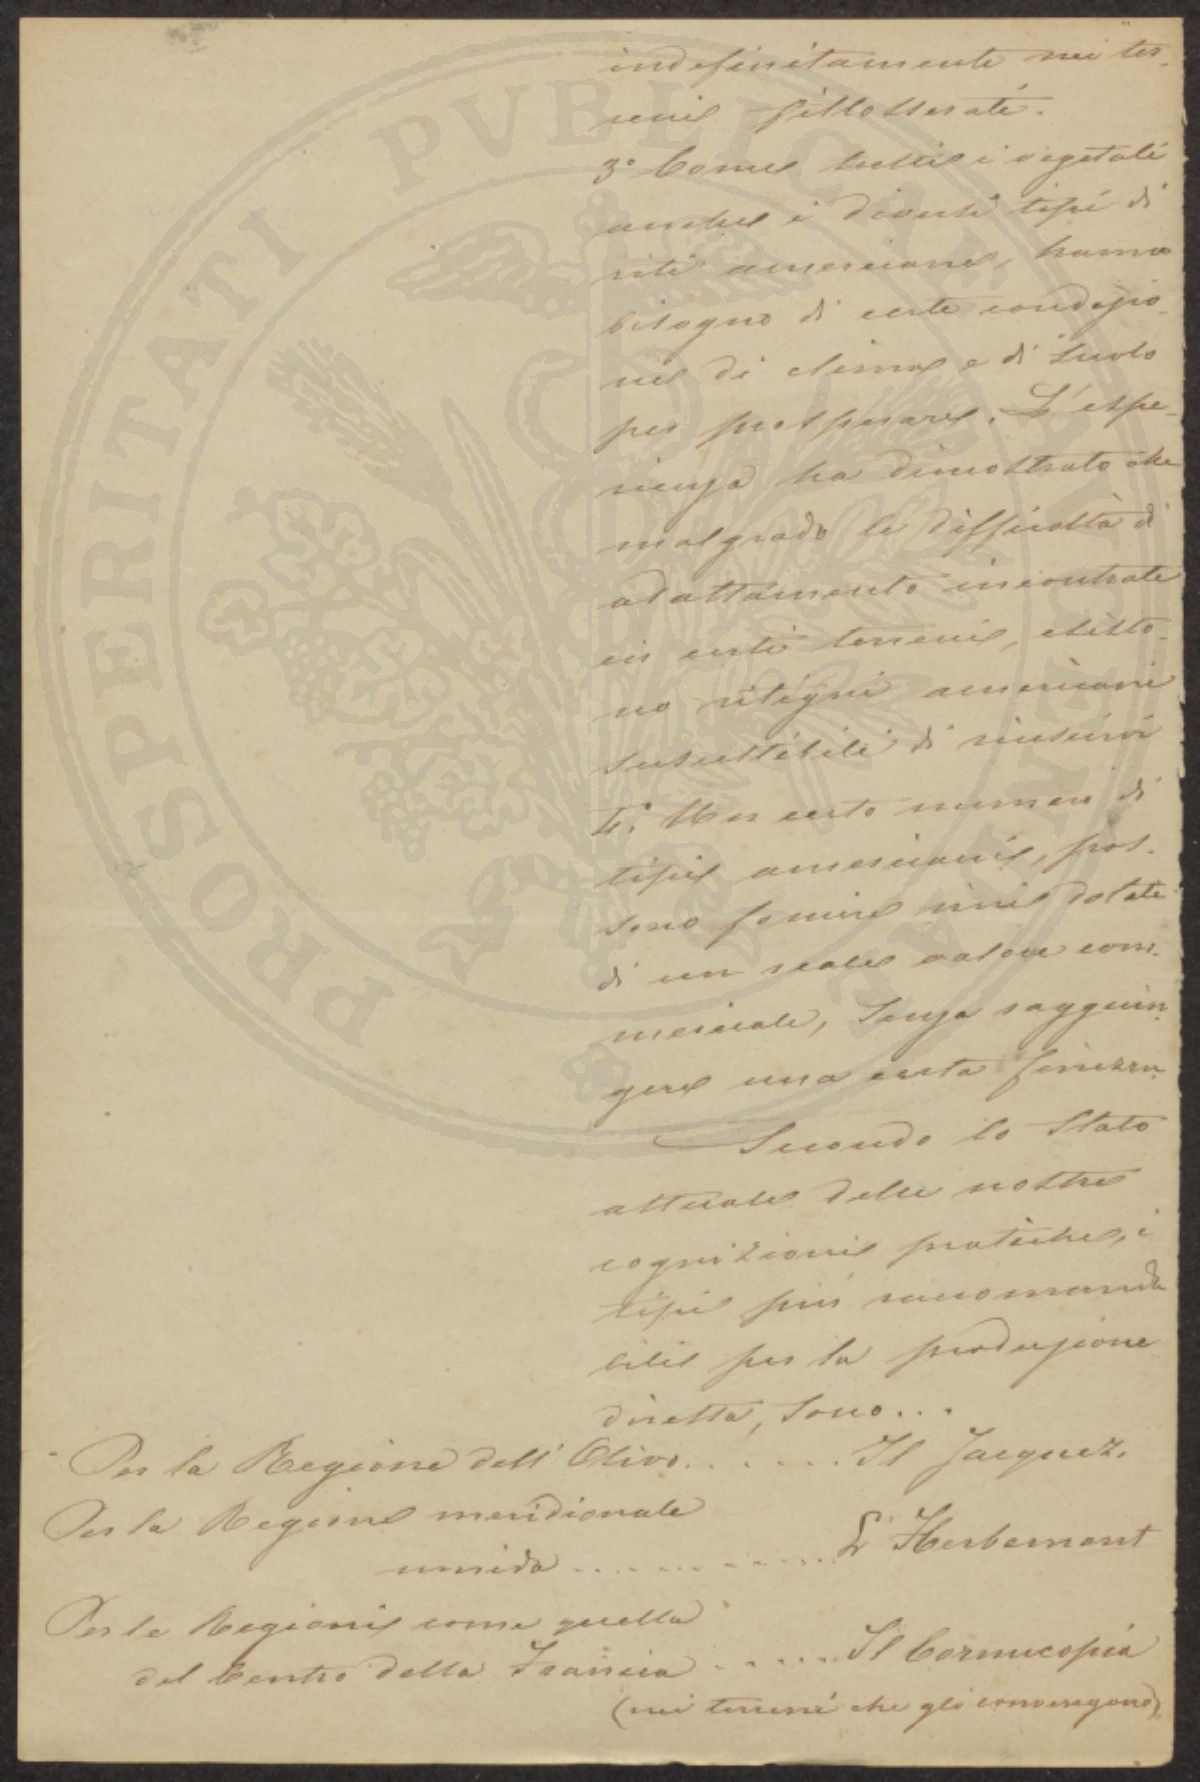 indefinitamente nei ter-
reni fillosserati.
3° Come tutti i vegetali
anche i diversi tipi di
viti americane, hanno
bisogno di certe condizio-
ni di clima e di suolo
per prosperare. L'espe-
rienza ha dimostrato che
malgrado le difficoltà di
adattamento incontrate
in certi terreni, esisto-
no vitigni americani
suscettibili di riuscirvi
4° Un certo numero di
tipi americani, pos-
sono fornire vini dotati
di un reale valore com-
merciale, senza raggiun
gere una certa finezza.
Secondo lo stato
attuale delle nostre
cognizioni pratiche, i
tipi più raccomanda
bili per la produzione
diretta, sono...
Per la Regione dell' Olivo....... Il Jacquez.
Per la Regione meridionale
umida ............ L' Herbemont
Per le Regioni come quella
del Centro della Francia ...... Il Cornucopia
(nei terreni che gli convengono)
PROSPERITATI PVBLICAE